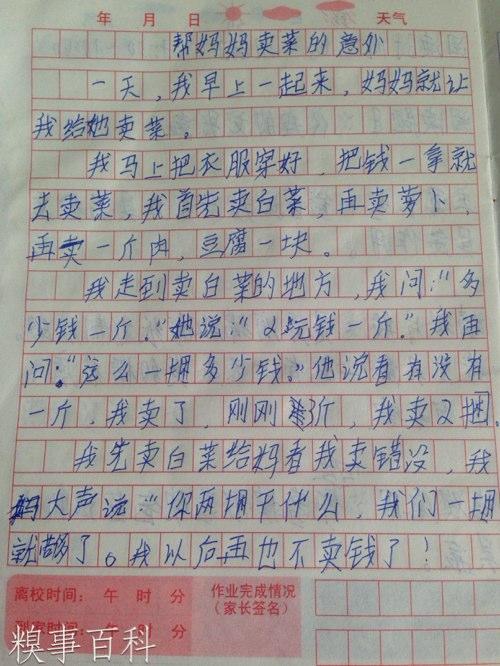 年 月 日 天气
帮妈妈卖菜的意外
一天，我早上一起来，妈妈就让
我给她卖菜。
我马上把衣服穿好，把钱一拿就
去卖菜，我首先卖白菜，再卖萝卜，
再卖一斤肉，豆腐一块。
我走到卖白菜的地方，我问：“多
少钱一斤。”她说：“2玩钱一斤。”我再
问：“这么一捆多少钱。”他说看有没有
一斤，我卖了，刚刚3斤，我卖2捆。
我先卖白菜给妈看我卖错没，我
妈大声说：“你两捆干什么，我们一捆
就够了。我以后再也不卖钱了！
离校时间： 午 时 分 作业完成情况
（家长签名）
到家时间： 午 时 分
糗事百科